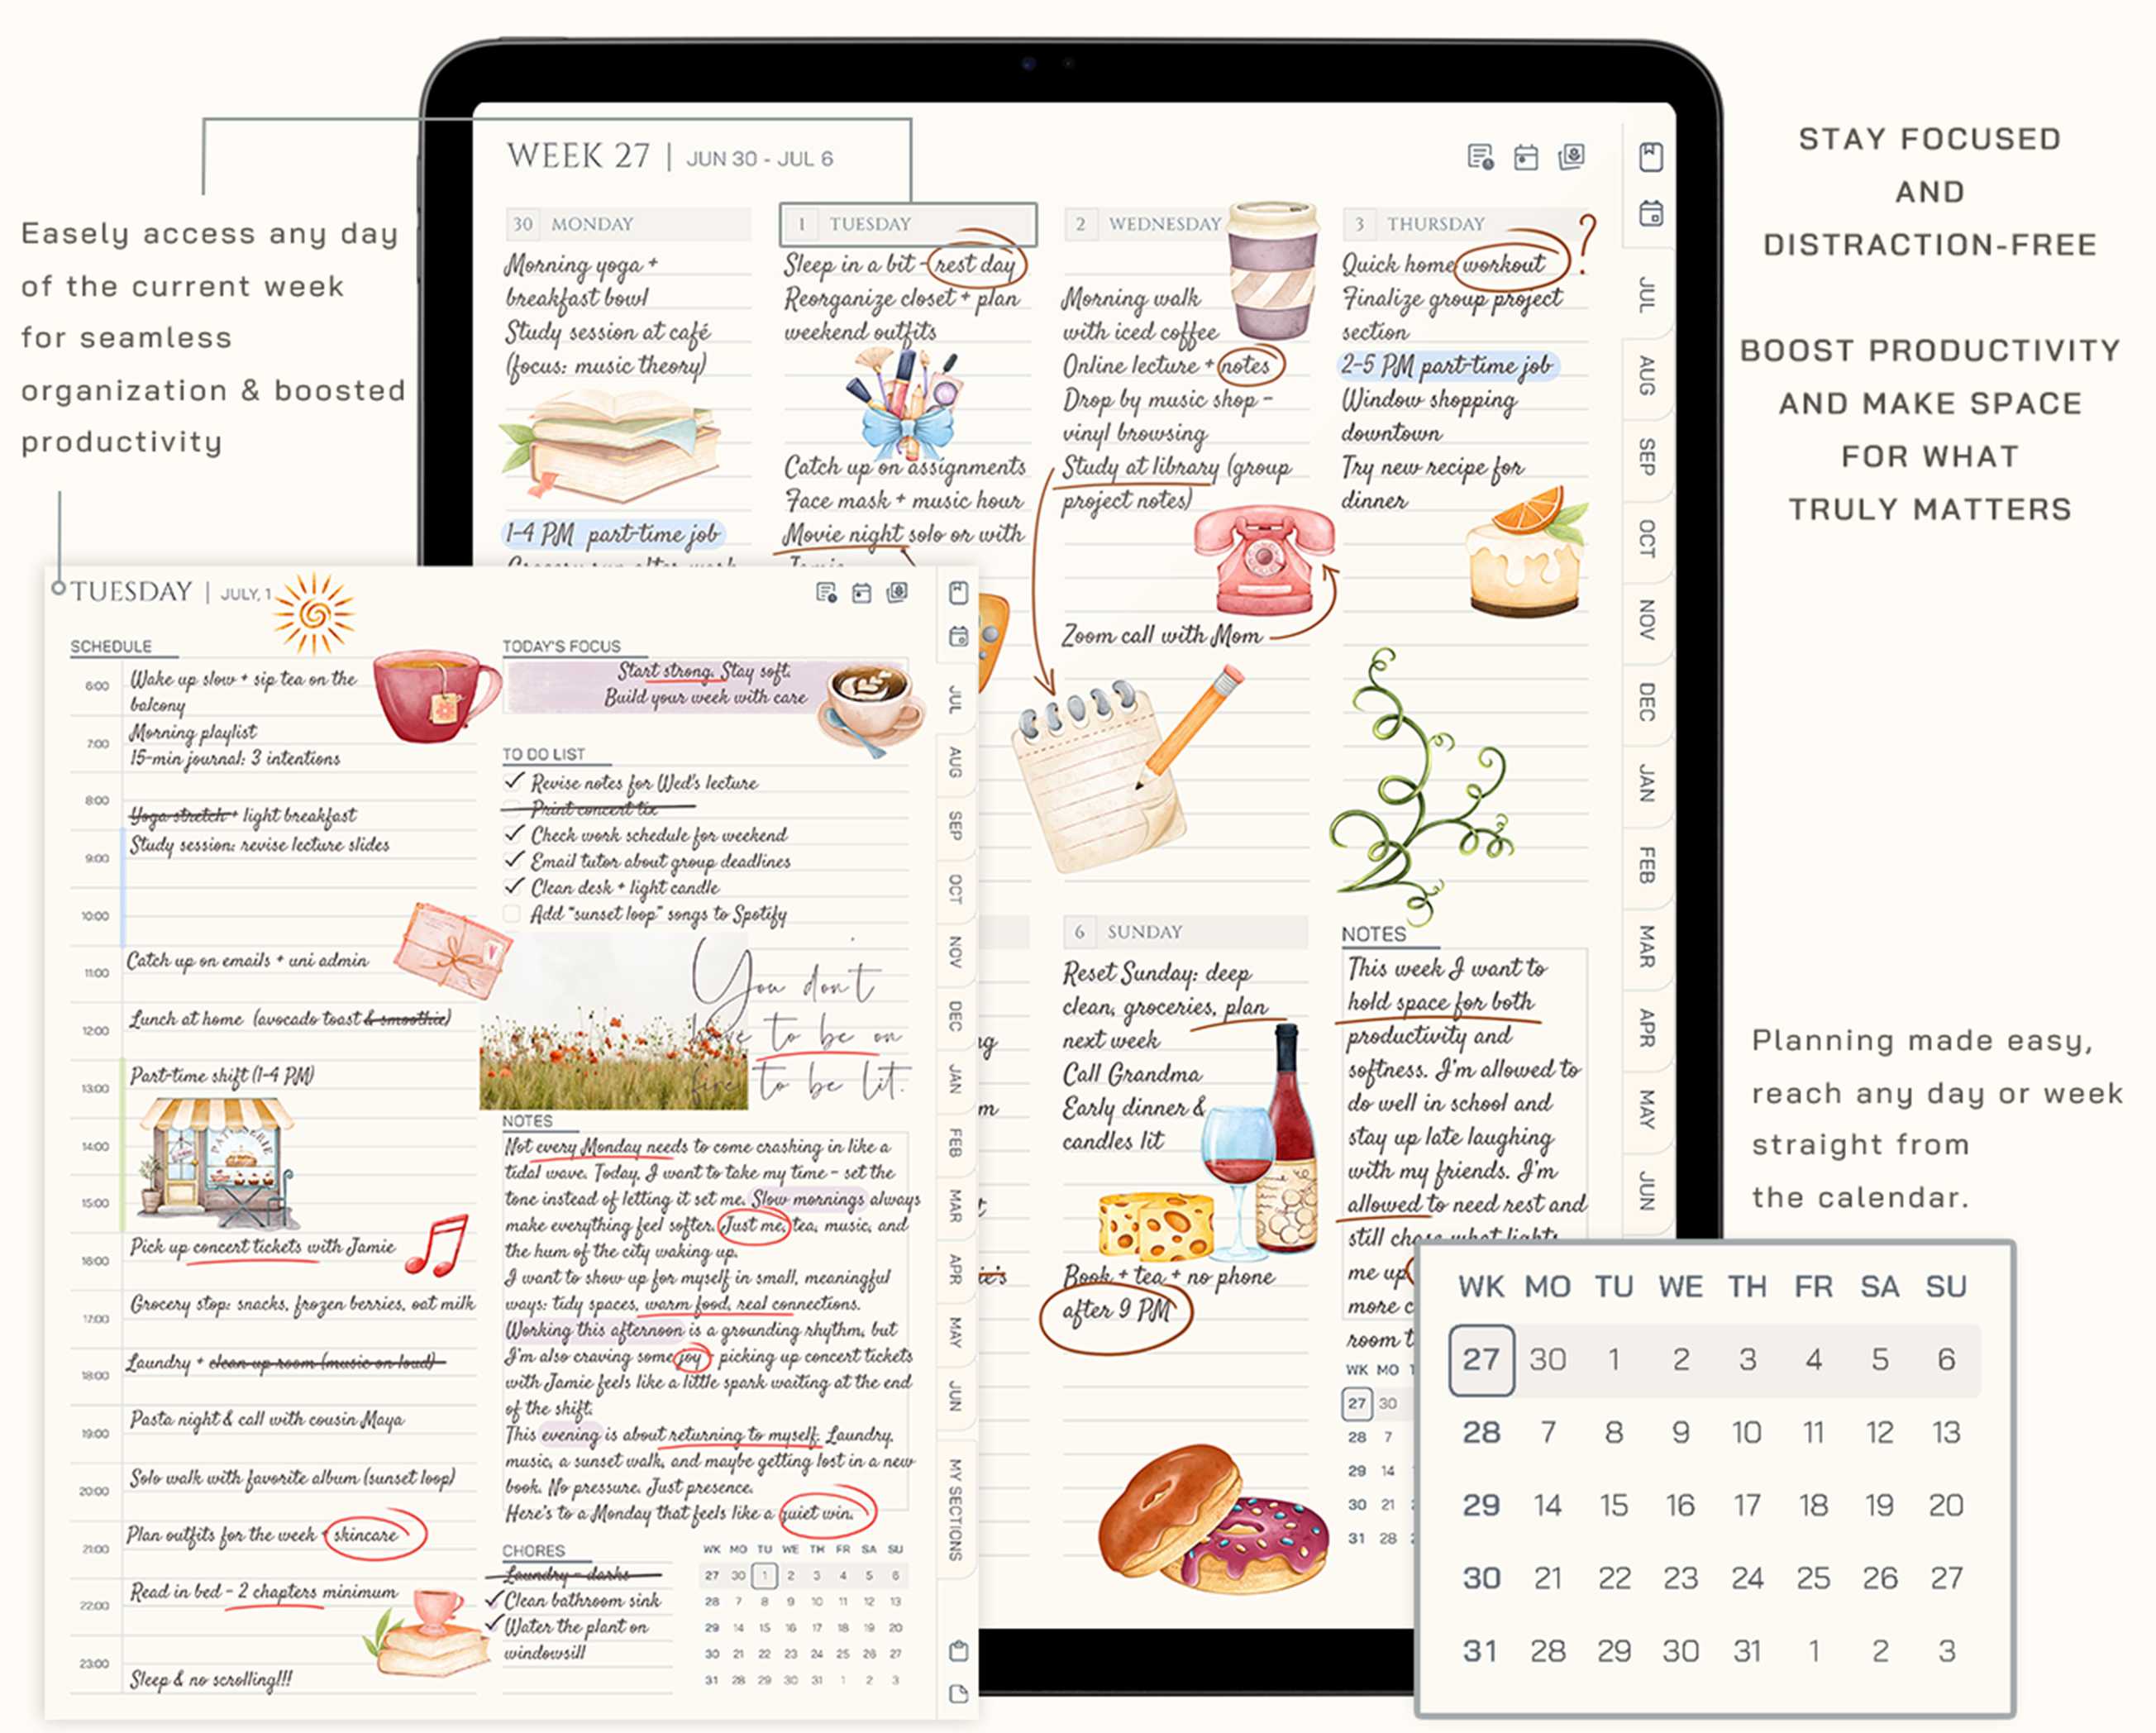 Easely access any day
of the current week
for seamless
organization & boosted
productivity
STAY FOCUSED
AND
DISTRACTION-FREE
BOOST PRODUCTIVITY
AND MAKE SPACE
FOR WHAT
TRULY MATTERS
Planning made easy,
reach any day or week
straight from
the calendar.
WEEK 27 | JUN 30 - JUL 6
30 MONDAY
Morning yoga +
breakfast bowl
Study session at café
(focus: music theory)
1-4 PM part-time job
1 TUESDAY
Sleep in a bit - rest day
Reorganize closet + plan
weekend outfits
Catch up on assignments
Face mask + music hour
Movie night solo or with
Jamie
2 WEDNESDAY
Morning walk
with iced coffee
Online lecture + notes
Drop by music shop -
vinyl browsing
Study at library (group
project notes)
Zoom call with Mom
3 THURSDAY
?
Quick home workout
Finalize group project
section
2-5 PM part-time job
Window shopping
downtown
Try new recipe for
dinner
6 SUNDAY
Reset Sunday: deep
clean, groceries, plan
next week
Call Grandma
Early dinner &
candles lit
Book + tea + no phone
after 9 PM
NOTES
This week I want to
hold space for both
productivity and
softness. I'm allowed to
do well in school and
stay up late laughing
with my friends. I'm
allowed to need rest and
still
me up
more
room
WK MO
27 30
28 7
29 14
30 21
31 28
JUL
AUG
SEP
OCT
NOV
DEC
JAN
FEB
MAR
APR
MAY
JUN
TUESDAY | JULY, 1
SCHEDULE
6:00 Wake up slow + sip tea on the
balcony
Morning playlist
7:00
15-min journal: 3 intentions
8:00
Yoga stretch + light breakfast
Study session: revise lecture slides
9:00
10:00
Catch up on emails + uni admin
11:00
Lunch at home (avocado toast & smoothie)
12:00
Part-time shift (1-4 PM)
13:00
PATISSERIE
14:00
15:00
Pick up concert tickets with Jamie
16:00
Grocery stop: snacks, frozen berries, oat milk
17:00
Laundry + clean up room (music on loud)
18:00
Pasta night & call with cousin Maya
19:00
Solo walk with favorite album (sunset loop)
20:00
Plan outfits for the week + skincare
21:00
Read in bed - 2 chapters minimum
22:00
23:00
Sleep & no scrolling!!!
TODAY'S FOCUS
Start strong. Stay soft.
Build your week with care
TO DO LIST
Revise notes for Wed's lecture
Print concert tix
Check work schedule for weekend
Email tutor about group deadlines
Clean desk + light candle
Add "sunset loop" songs to Spotify
You don't
have to be on
fire to be lit.
NOTES
Not every Monday needs to come crashing in like a
tidal wave. Today, I want to take my time - set the
tone instead of letting it set me. Slow mornings always
make everything feel softer. Just me, tea, music, and
the hum of the city waking up.
I want to show up for myself in small, meaningful
ways: tidy spaces, warm food, real connections.
Working this afternoon is a grounding rhythm, but
I'm also craving some joy - picking up concert tickets
with Jamie feels like a little spark waiting at the end
of the shift.
This evening is about returning to myself. Laundry,
music, a sunset walk, and maybe getting lost in a new
book. No pressure. Just presence.
Here's to a Monday that feels like a quiet win.
CHORES
Laundry - darks
Clean bathroom sink
Water the plant on
windowsill
WK MO TU WE TH FR SA SU
27 30 1 2 3 4 5 6
28 7 8 9 10 11 12 13
29 14 15 16 17 18 19 20
30 21 22 23 24 25 26 27
31 28 29 30 31 1 2 3
JUL
AUG
SEP
OCT
NOV
DEC
JAN
FEB
MAR
APR
MAY
JUN
MY SECTIONS
WK MO TU WE TH FR SA SU
27 30 1 2 3 4 5 6
28 7 8 9 10 11 12 13
29 14 15 16 17 18 19 20
30 21 22 23 24 25 26 27
31 28 29 30 31 1 2 3